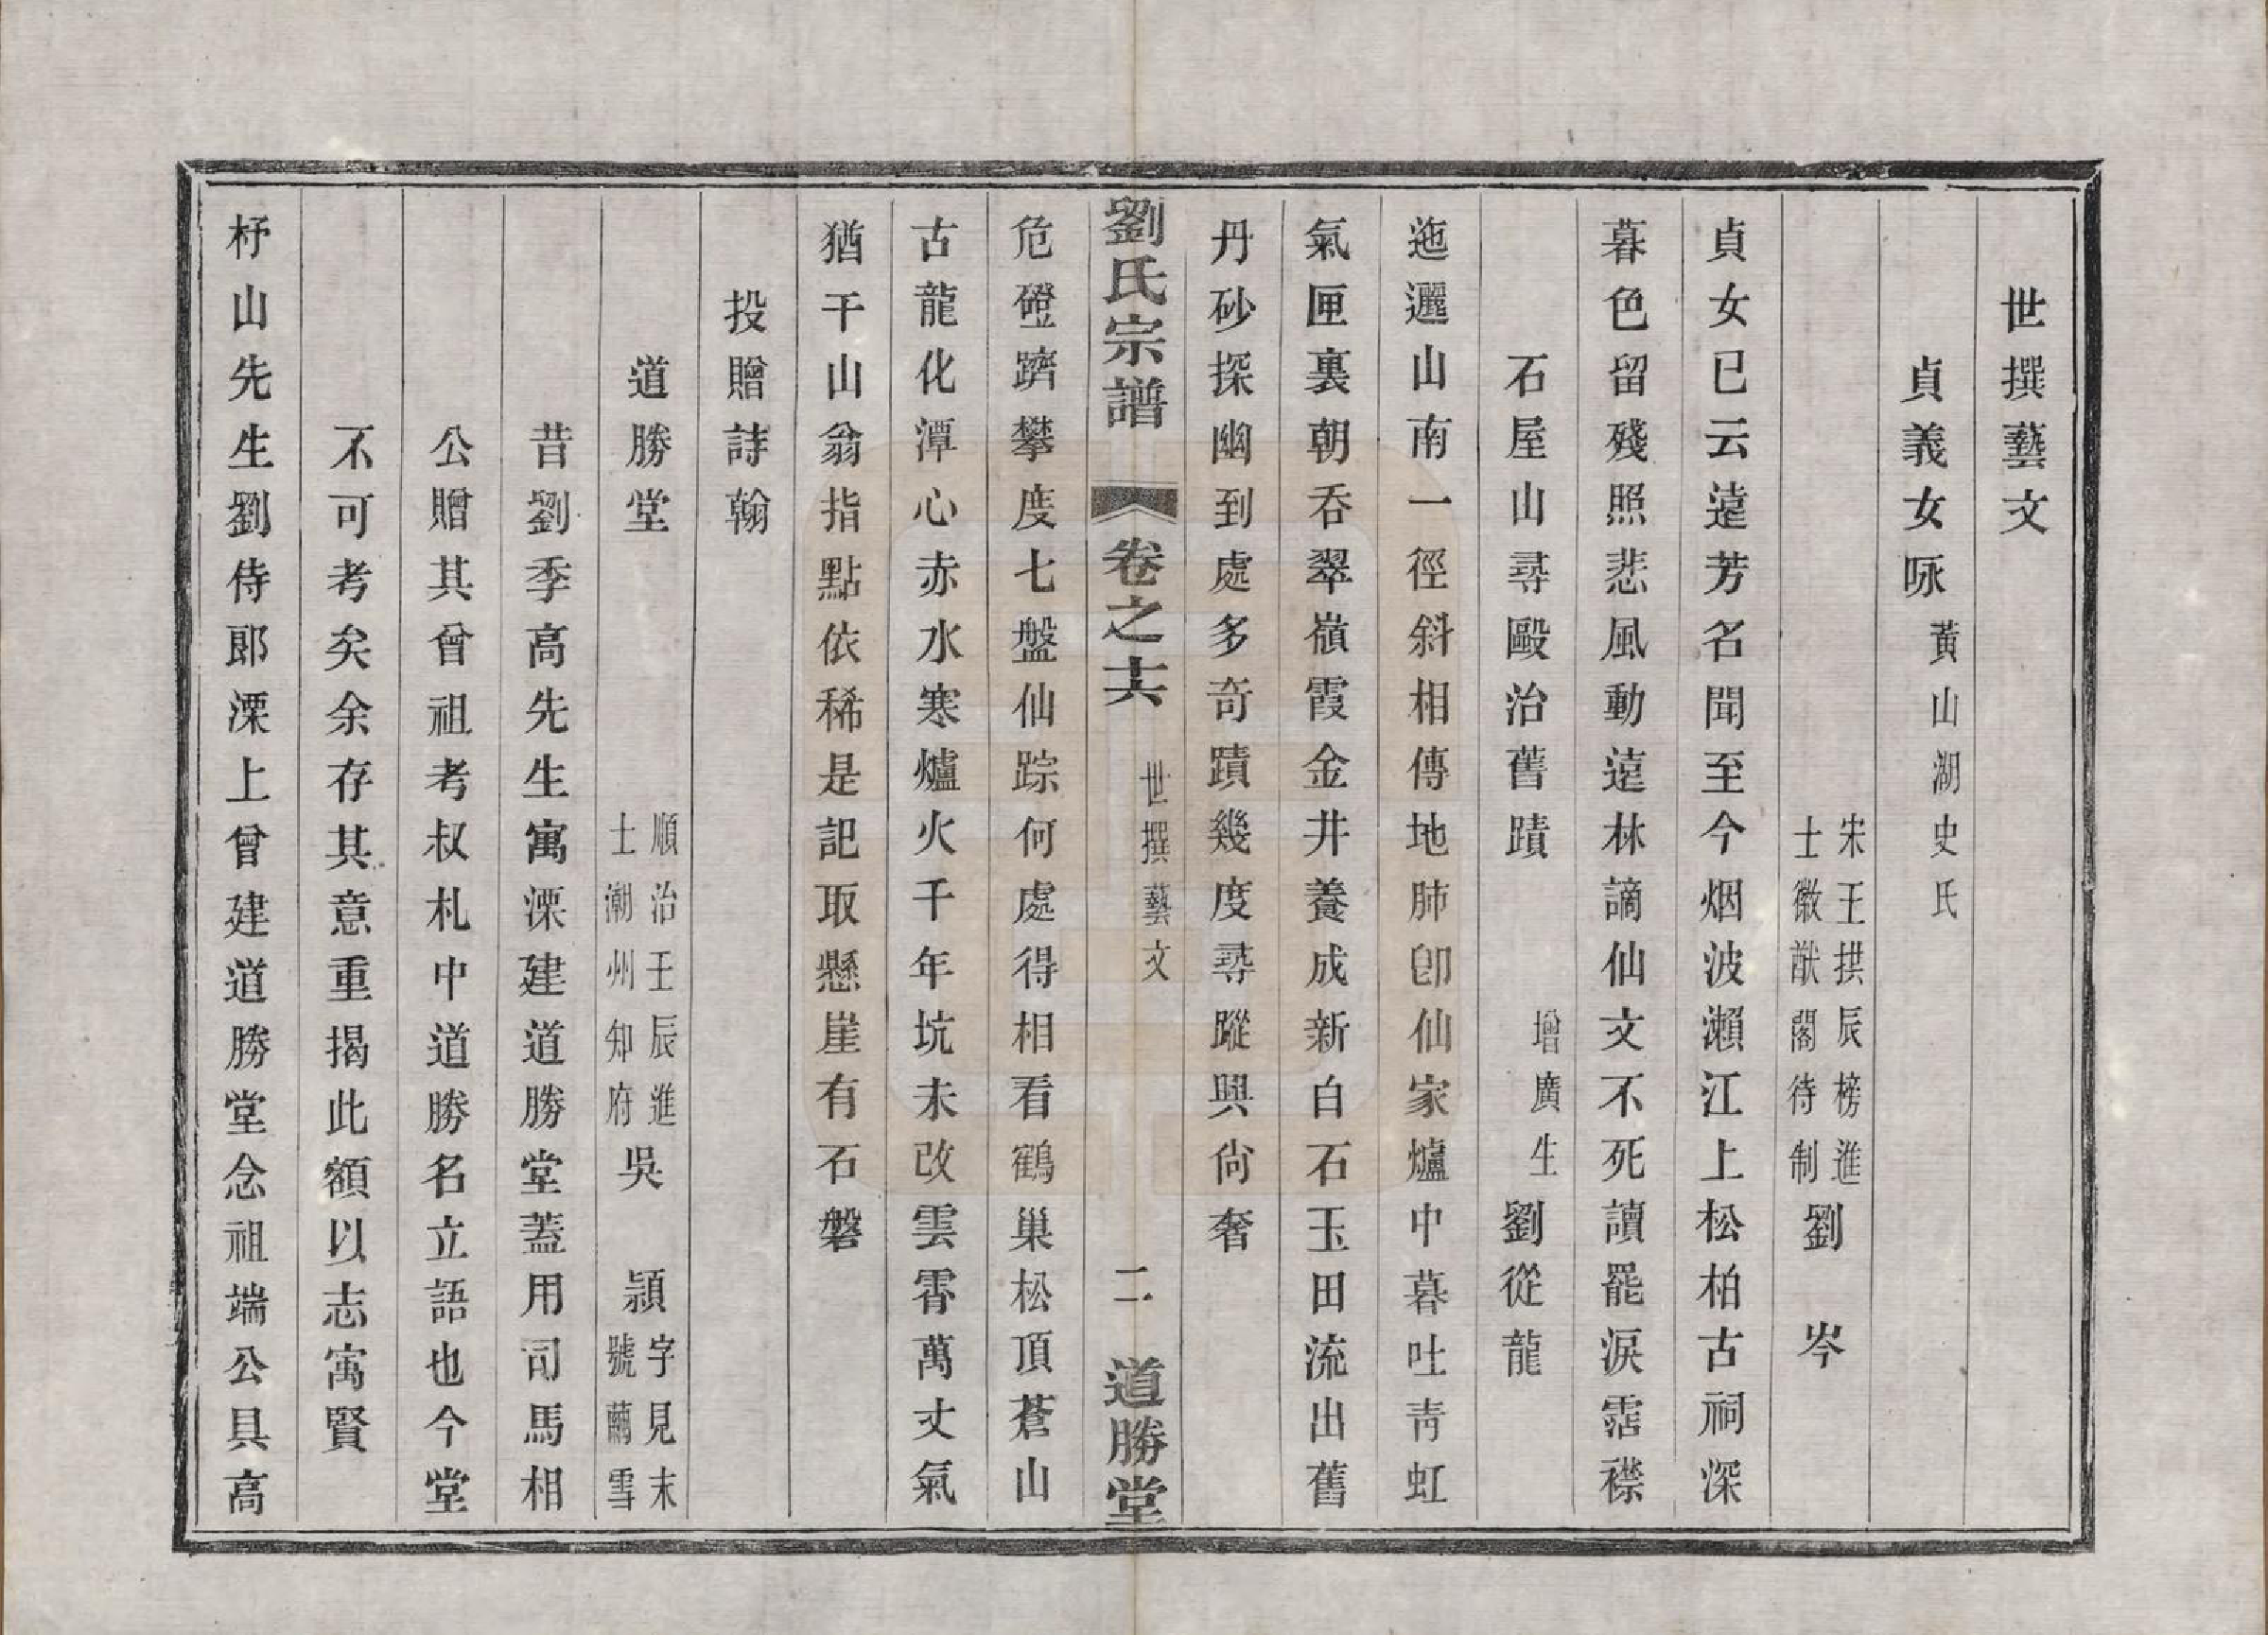 世撰藝文
貞義女咏黃山湖史氏
宋王拱辰榜進士徽猷閣待制劉　岑
貞女已云遠芳名聞至今烟波瀨江上松柏古祠深
暮色留殘照悲風動遠林謫仙文不死讀罷淚霑襟
石屋山尋毆治舊蹟　增廣生劉從龍
迤邐山南一徑斜相傳地肺卽仙家爐中暮吐靑虹
氣匣裏朝吞翠嶺霞金井養成新白石玉田流出舊
丹砂探幽到處多奇蹟幾度尋蹤興尙奢
劉氏宗譜　卷之十六　世撰藝文　二　道勝堂
危磴躋攀度七盤仙踪何處得相看鶴巢松頂蒼山
古龍化潭心赤水寒爐火千年坑未改雲霄萬丈氣
猶干山翁指點依稀是記取懸崖有石磐
投贈詩翰
道勝堂　順治壬辰進士潮州知府吳　頴字見末號繭雪
昔劉季高先生寓溧建道勝堂蓋用司馬相
公贈其曾祖考叔札中道勝名立語也今堂
不可考矣余存其意重揭此額以志寓賢
杼山先生劉侍郞溧上曾建道勝堂念祖端公具高